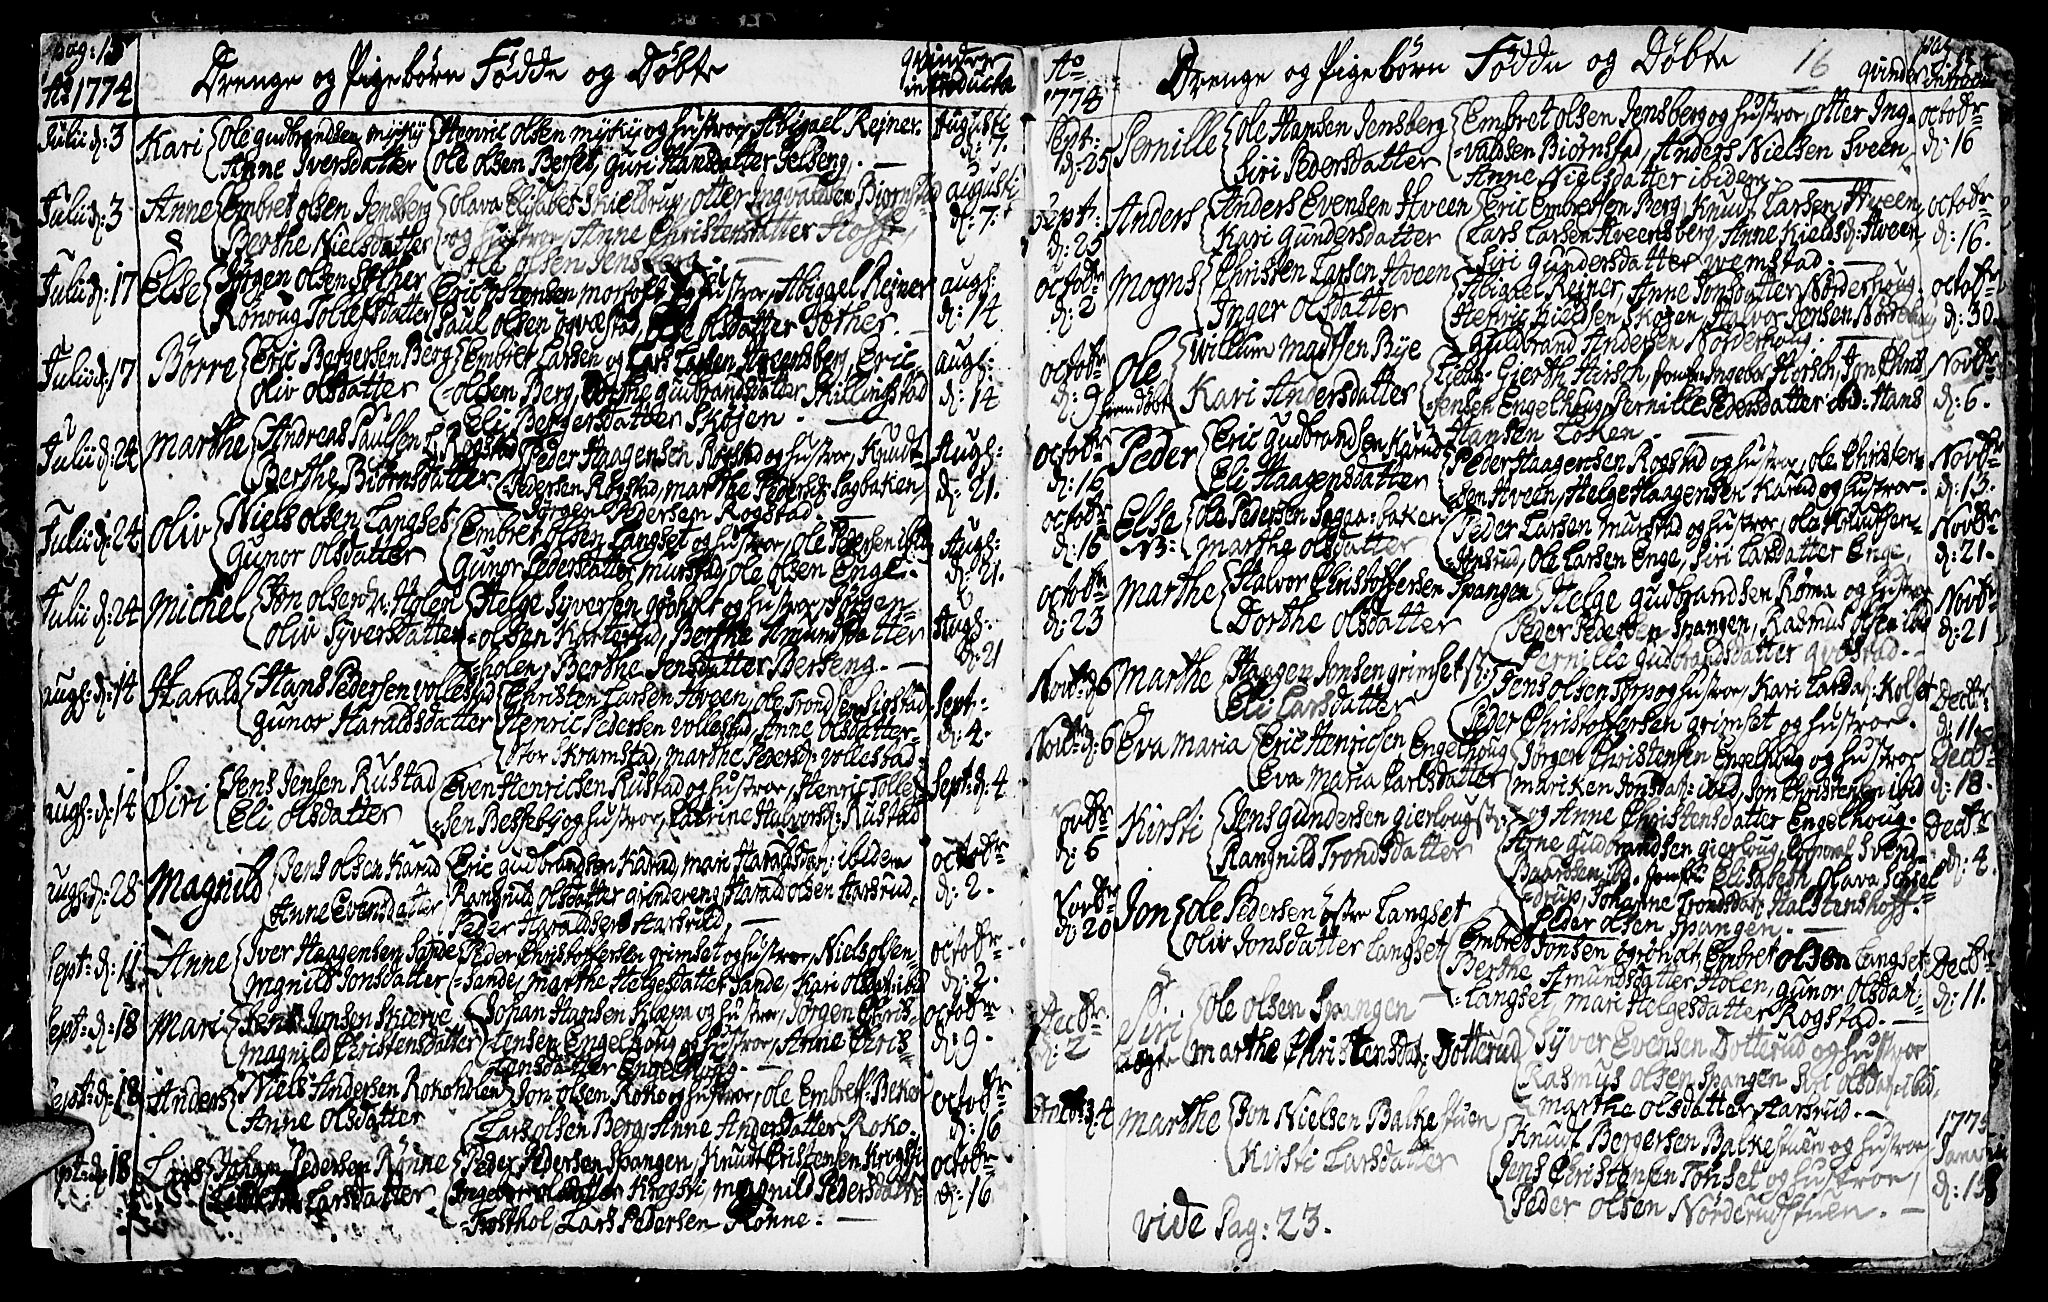 pag: 15
Ao 1774
Drenge og Pigebörn Födde og Döbte
qvinder
introducta
Julii d: 3
Kari
Ole Gudbrandsen myhij
Anne Iversdatter
Henric Olsen myhij og hustroe, Abigael Rejner
Ole Olsen Berset, Guri Hansdatter Selseng.
Augusti
d: 7.
Julii d: 3
Anne
Embret Olsen Jensberg
Berthe Nielsdatter
Olava Elisabet Skieldrup, Otter Ingvaldsen Biörnstad
og hustroe, Anne Christensdatter Hoff
Ole Olsen Jensberg
augusti
d: 7.
Julii d: 17
Else
Jörgen Olsen Sether
Rönoug Tollefsdatter
Paul Olsen
augs:
d: 14
Julii d: 17
Börre
Eric Bergersen Berg
Oliv Olsdatter
Embret Larsen og Lars Larsen Hveensberg, Eric
Olsen Berg, Dorthe Gudbrandsdatter Skillingstad
Eli Bergersdatter Skosen
augs:
d: 14
Julii d: 24
Marthe
Andreas Paulsen Rogstad
Berthe Biörnsdatter
Peder Haagensen Rogstad og hustroe, Knudt
Pedersen Rogstad, Marthe Pedersd: Sagbaken
Jörgen Pedersen Rogstad
Augs:
d: 21.
Julii d: 24
Oliv
Niels Olsen Langset
Gunor Olsdatter
Embret Olsen Langset og hustroe, Ole Pedersen ibid
Gunor Pedersdatter Murstad, Ole Olsen Enge.
Augs:
d: 21.
Julii d: 24
Michel
Jon Olsen N: Holen
Oliv Syversdatter
Helge Syversen og hustroe, Jörgen
Olsen Korterud, Berthe Amundsdatter
Holen, Berthe Jensdatter Berseng.
Augs:
d: 21
augs: d: 14
Harald
Hans Pedersen Vollestad
Gunor Haraldsdatter
Christen Larsen Hveen, Ole Trondsen Sigstad
Henric Pedersen Vollestad, Anne Olsdatter
Stor Skramstad, Marthe Pedersd: Vollestad
Sept:
d: 4.
augs: d: 14
Siri
Jens Jensen Rustad
Eli Olsdatter
Even Henricsen Rustad og hustroe, Henric Tolle
sen Besseby og hustroe, Catrine Halvorsd: Rustad
Sept: d: 4
augs: d: 28
Magnild
Jens Olsen Karud
Anne Evensdatter
Eric Gudbrandsen Karud, Mari Haraldsdat: ibidem
Rangnild Olsdatter Grindereng, Harald Olsen Harsrud
Peder Haraldsen Harsrud,
octobr
d: 2.
Sept: d: 11
Anne
Iver Haagensen Sande
Magnild Jonsdatter
Peder Christoffersen Grimset og hustroe, Niels Olsen
Sande, Marthe Helgesdatter Sande, Kari Olsdat: ibid
octobr
d: 2.
Sept: d: 18
Mari
Jens Jonsen Skierve
Magnild Christensdatter
Johan Hansen Klæpa og hustroe, Jörgen Chris
tensen Engelhoug og hustroe, Anne Chris
tensdatter Engelhoug.
octobr
d: 9.
Sept: d: 18
Anders
Niels Andersen Rokoholen
Anne Olsdatter
Jon Olsen Roko og hustroe, Ole Embretsen
Lars Olsen Berg, Anne Andersdatter Roko.
octobr
d: 16
Sept: d: 18
Lars
Johan Pedersen Rönne
Larsdatter
Peder Pedersen Spangen, Knudt Christensen Krogsti
Krogsti, Magnild Pedersdatter
Frosthol, Lars Pedersen Rönne.
octobr
d: 16
Ao
1774
Drenge og Pigebörn Födde og Döbte
16
qvinder
Sept:
d: 25
Pernille
Ole Hansen Jensberg
Siri Pedersdatter
Embret Olsen Jensberg og hustroe, Otter Ing
valdsen Biörnstad, Anders Nielsen Hveen
Anne Nielsdatter ibidem.
octobr
d: 16
Sept:
d: 25
Anders
Anders Evensen Hveen
Kari Gundersdatter
Eric Embretsen Berg, Knud Larsen Hveen
Lars Larsen Hveensberg, Anne Nielsd: Hveen
Siri Gundersdatter Wemstad.
octobr
d: 16.
octobr
d: 2
Mogns
Christen Larsen Hveen
Inger Olsdatter
Abigael Rejner, Anne Jonsdatter Norderhoug
Henric Nielsen Skosen, Halvor Jensen Norderhoug
Guldbrand Andersen Norderhoug.
octobr
d: 30.
octobr
d: 9
Ole
Willum Madtsen Bye
Kari Andersdatter
Gierth Hirsch, Jomfr: Ingebor Hirsch, Jon Chris
tensen Engelhoug, Pernille Pedersdatter ibid: Hans
Hansen Löken.
Novbr
d: 6.
octobr
d: 16
Peder
Eric Gudbrandsen Karud
Eli Haagensdatter
Peder Haagensen Rogstad og hustroe, Ole Christen
sen Hveen, Helge Haagensen Karud og hustroe.
Novbr
d: 13.
octobr
d: 16
Else
N3:
Ole Pedersen Sagaa-baken
Marthe Olsdatter
Peder Larsen Murstad og hustroe, Ole Knudtsen
Jensrud, Ole Larsen Enge, Siri Larsdatter Enge,
Novbr
d: 21.
octobr
d: 23
Marthe
Halvor Christoffersen Spangen
Dorthe Olsdatter
Helge Gudbrandsen Röma og hustroe
Peder Pedersen Spangen, Rasmus Olsen ibid
Pernille Gudbrandsdatter
Novbr
d: 21
Novb: d: 6
Marthe
Haagen Jonsen Grimset
Eli Larsdatter
Jens Olsen Torp og hustroe, Kari Larsdat: Kolset
Peder Christoffersen Grimset og hustroe.
Decbr
d: 11.
Novb: d: 6
Eva Maria
Eric Henricsen Engelhoug
Eva Maria Carlsdatter
Jörgen Christensen Engelhoug og hustroe
Mariken Jonsdat: ibid, Jon Christensen ibid
og Anne Christensdatter Engelhoug.
Decbr
d: 18.
Novbr
d: 6
Kirsti
Jens Gundersen Gierlougsti
Rangnild Trondsdatter
Arne Gudbrandsen Gierloug, Svend
Baardsen ibid. Jomfr: Elisabeth Olava Schiel
drup, Johanne Trondsdat: Halstenshoff.
Peder Olsen Spangen.
Decbr
d: 4.
Novbr
d: 20
Jon
Ole Pedersen östre Langset
Oliv Jonsdatter Langset
Embret Jonsen, Embret Olsen Langset
Berthe Amundsdatter Holen, Gunor Olsdat:
Langset, Mari Helgesdatter Rogstad.
Decbr
d: 11.
Decbr
d: 2
Siri
Ole Olsen Spangen
Marthe Christensdat: Dotterud
Syver Evensen Dotterud og hustroe
Rasmus Olsen Spangen, Siri Olsdat: ibid.
Marthe Olsdatter Harsrud.
Decbr: d: 4
Marthe
Jon Nielsen Balkestuen
Kirsti Larsdatter
Knudt Bergersen Balkestuen og hustroe
Jens Christensen Tönset og hustroe,
Peder Olsen Norderudstuen.
1775
vide Pag: 23.